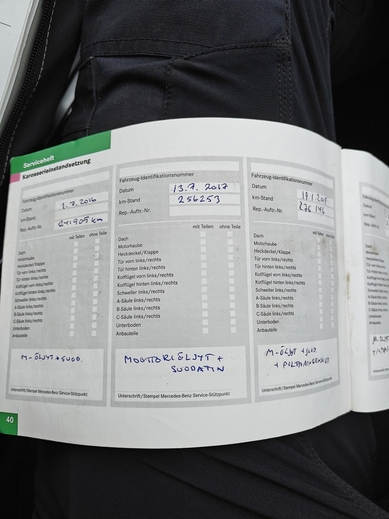 Serviceheft
Karosserieinstandsetzung
Fahrzeug-Identifikationsnummer
Datum 2.7.2016
km-Stand
Rep.-Auftr.-Nr. 241905 km
mit Teilen ohne Teile
Dach
Motorhaube
Heckdeckel/Klappe
Tür vorn links/rechts
Tür hinten links/rechts
Kotflügel vorn links/rechts
Kotflügel hinten links/rechts
Schweller links/rechts
A-Säule links/rechts
B-Säule links/rechts
C-Säule links/rechts
Unterboden
Anbauteile
M-ÖLJYT+SUOD.
Unterschrift/Stempel Mercedes-Benz Service-Stützpunkt
40
Fahrzeug-Identifikationsnummer
Datum 13.7.2017
km-Stand 256253
Rep.-Auftr.-Nr.
mit Teilen ohne Teile
Dach
Motorhaube
Heckdeckel/Klappe
Tür vorn links/rechts
Tür hinten links/rechts
Kotflügel vorn links/rechts
Kotflügel hinten links/rechts
Schweller links/rechts
A-Säule links/rechts
B-Säule links/rechts
C-Säule links/rechts
Unterboden
Anbauteile
MOOTTORIÖLJYT +
SUODATIN
Unterschrift/Stempel Mercedes-Benz Service-Stützpunkt
Fahrzeug-Identifikationsnummer
Datum
km-Stand
Rep.-Auftr.-Nr. 276 146
mit Teilen ohne Teile
Dach
Motorhaube
Heckdeckel/Klappe
Tür vorn links/rechts
Tür hinten links/rechts
Kotflügel vorn links/rechts
Kotflügel hinten links/rechts
Schweller links/rechts
A-Säule links/rechts
B-Säule links/rechts
C-Säule links/rechts
Unterboden
Anbauteile
M-ÖLJYT + SUOD.
Unterschrift/Stempel Mercedes-Benz Service-Stützpunkt